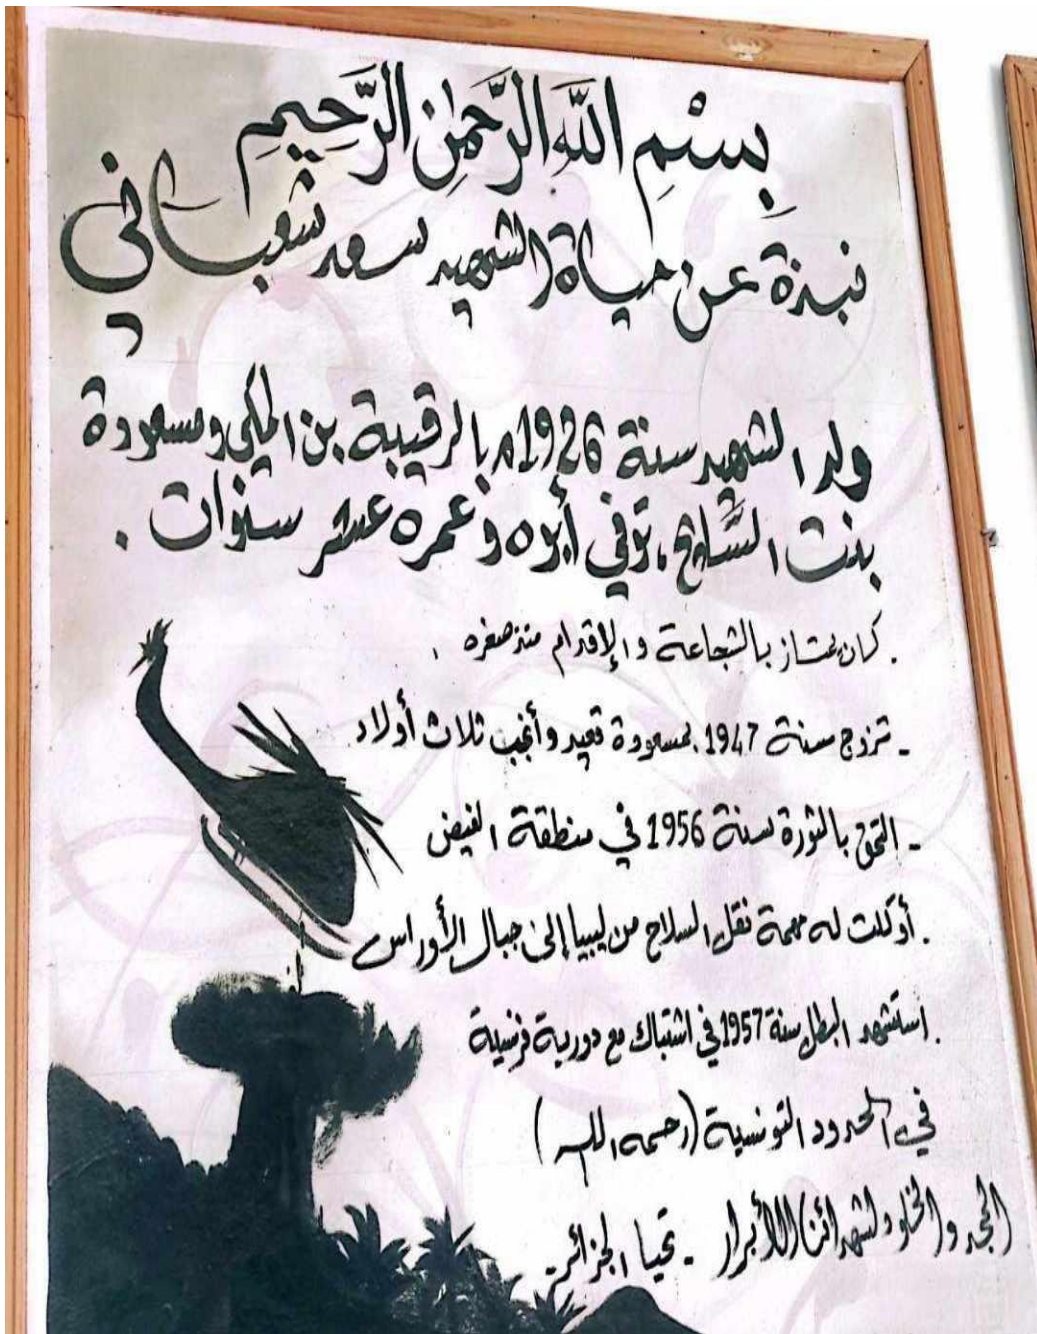 بِسْمِ اللَّهِ الرَّحْمَٰنِ الرَّحِيمِ
نبذة عن حياة الشهيد سعد شعباني
ولد الشهيد سنة 1926م بالرقيبة بن المكي ومسعودة
بنت السَّايح، توفي أبوه وعمره عشر سنوات .
. كان يمتاز بالشجاعة والإقدام منذ صغره .
- تزوج سنة 1947 بمسعودة قعيد وأنجب ثلاث أولاد
- التحق بالثورة سنة 1956 في منطقة الفيض
. أوكلت له مهمة نقل السلاح من ليبيا إلى جبال الأوراس
. استشهد البطل سنة 1957 في اشتباك مع دورية فرنسية
في الحدود التونسية (رحمه الله)
المجد والخلود لشهدائنا الأبرار - تحيا الجزائر -